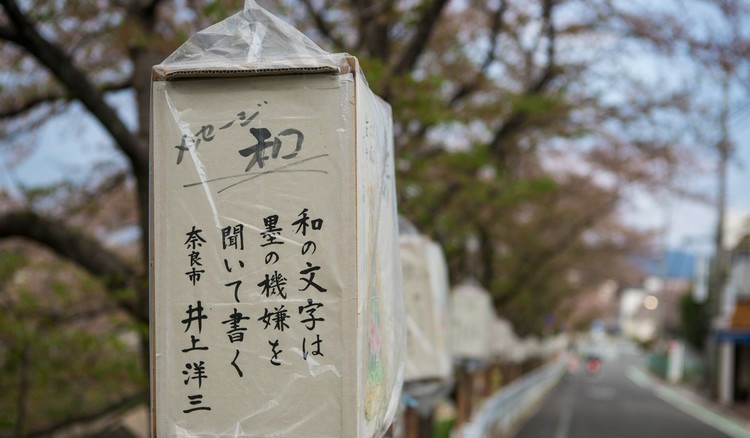 メッセージ 和
和の文字は
墨の機嫌を
聞いて書く
奈良市 井上洋三